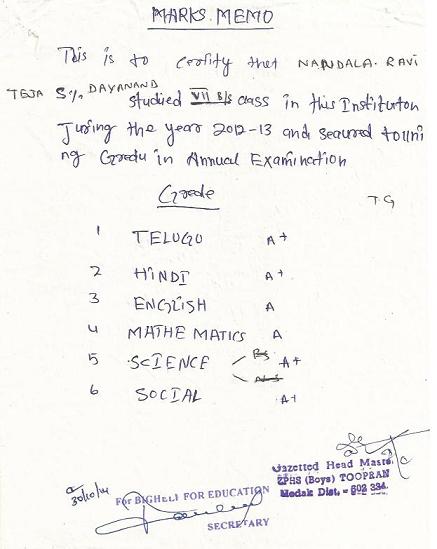 MARKS MEMO
This is to certify that NANDALA. RAVI
TEJA S/o. DAYANAND studied VII B/s class in this Instituton
During the year 2012-13 and secured
ng Gredu in Annual Examination
Grade
T.G
1 TELUGU A+
2 HINDI A+
3 ENGLISH A
4 MATHEMATICS A
5 SCIENCE A+
6 SOCIAL A+
30/10/14
For BIGHELI FOR EDUCATION
SECRETARY
Gazetted Head Maste
ZPHS (Boys) TOOPRAN
Medak Dist. - 502 334.